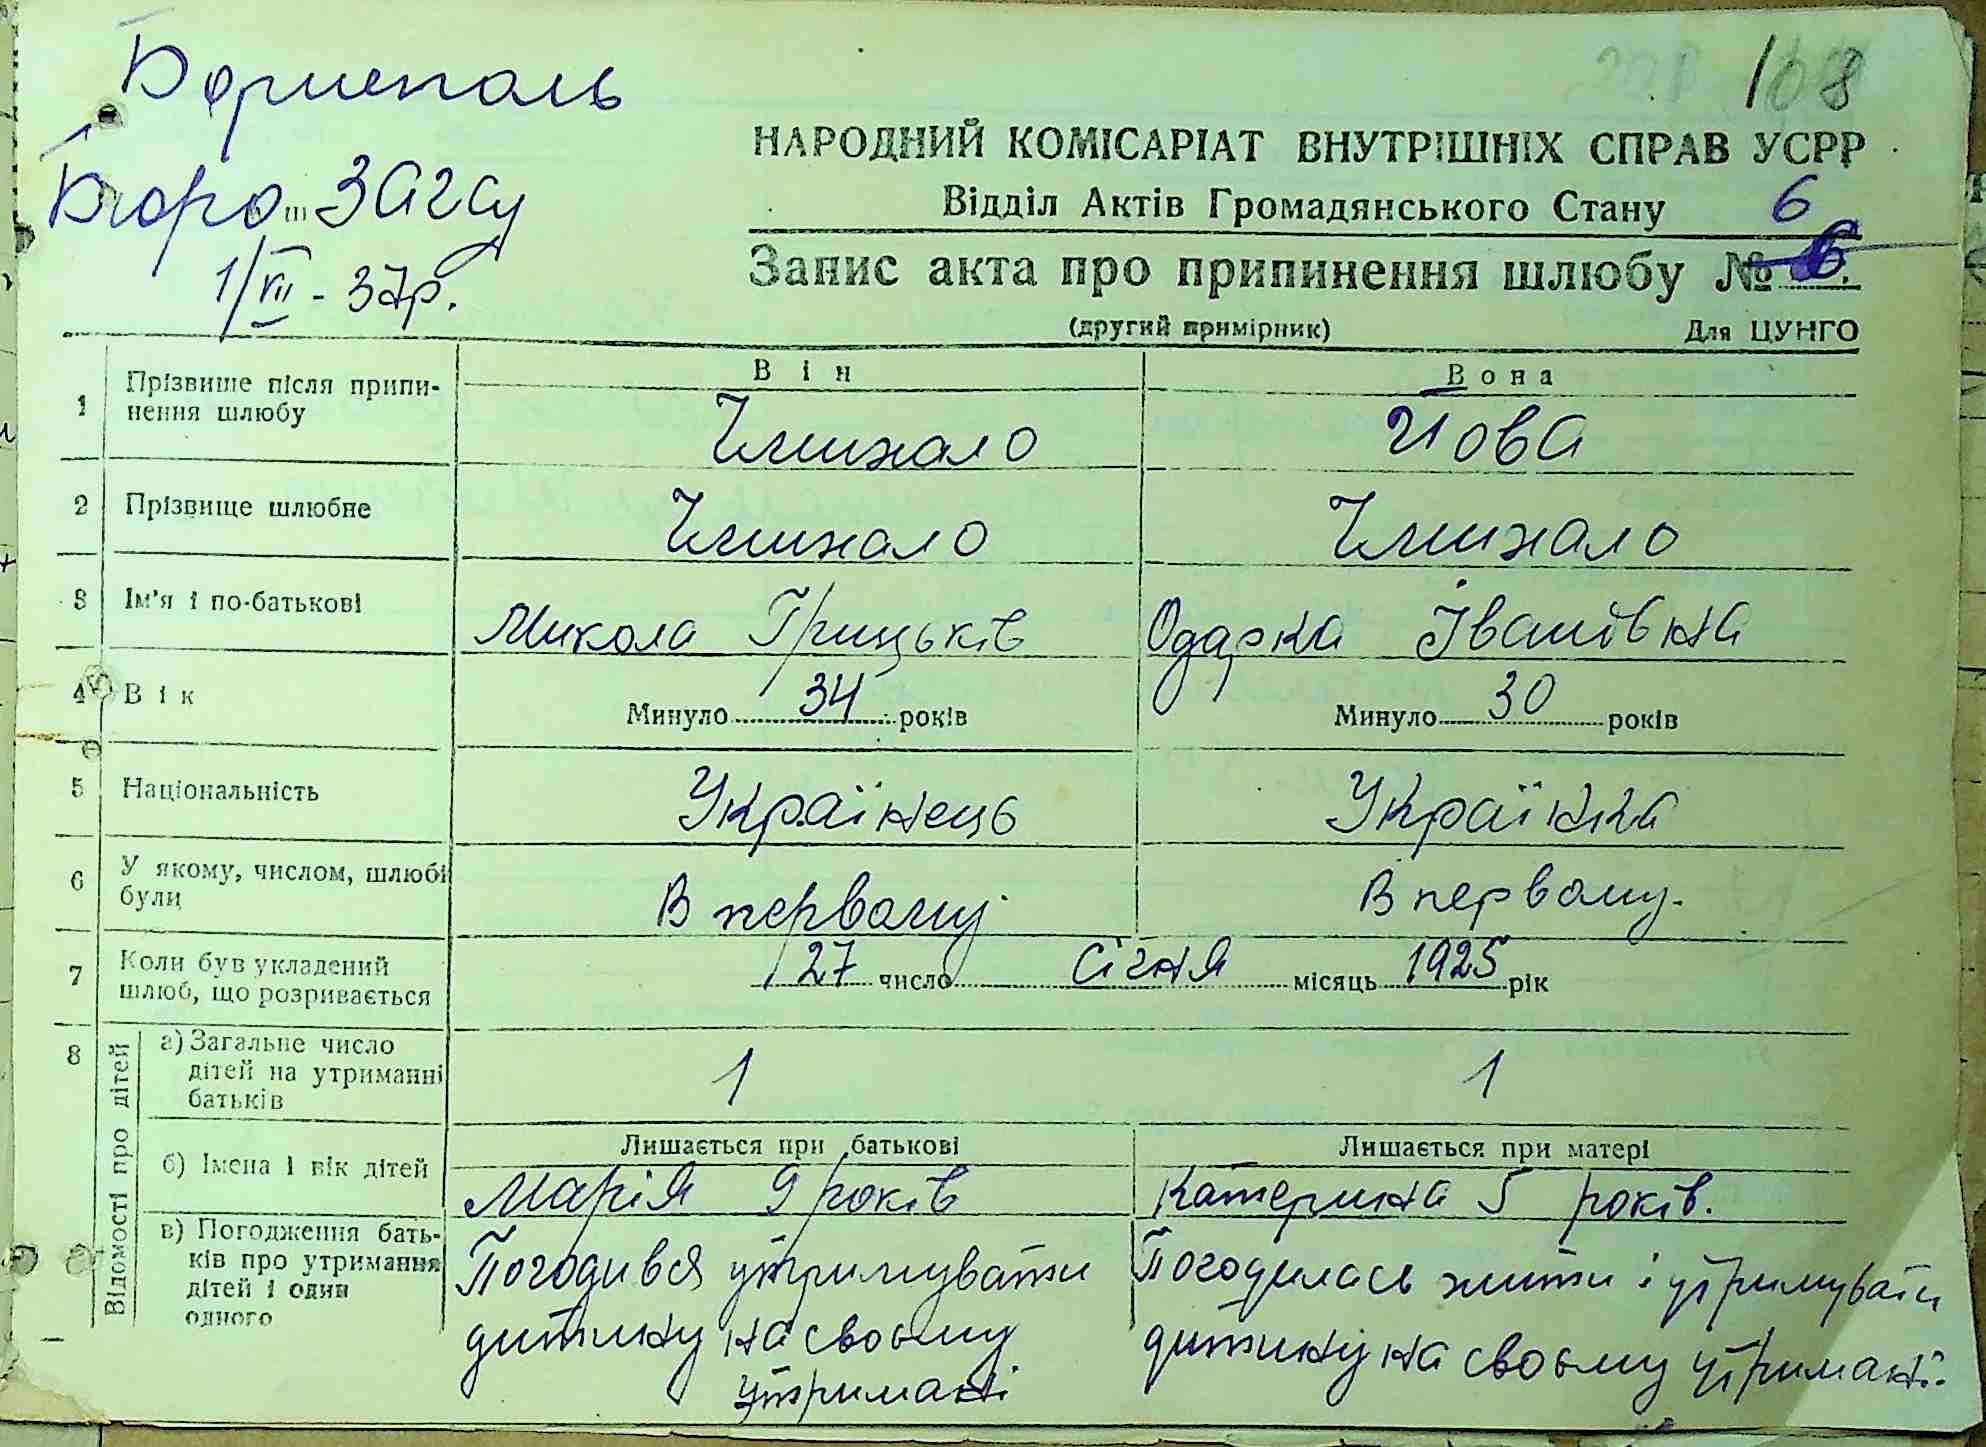 Борисполь
108
Бюро ЗАГСу
1/VII - 37р.
НАРОДНИЙ КОМІСАРІАТ ВНУТРІШНІХ СПРАВ УСРР
Відділ Актів Громадянського Стану 6
Запис акта про припинення шлюбу № 6.
(другий примірник) Для ЦУНГО
Він Вона
1 Прізвище після припинення шлюбу Чмихало Йова
2 Прізвище шлюбне Чмихало Чмихало
3 Ім'я і по-батькові Микола Грицьків Одарка Івановна
4 Вік Минуло 34 років Минуло 30 років
5 Національність Українець Українка
6 У якому, числом, шлюбі були В первому В первому.
7 Коли був укладений шлюб, що розривається 27 число січня місяць 1925 рік
8 Відомості про дітей
а) Загальне число дітей на утриманні батьків 1 1
Лишається при батькові Лишається при матері
б) Імена і вік дітей Марія 9 років Катерина 5 років.
в) Погодження батьків про утримання дітей і один одного
Погодився утримувати дитину на своьму утримані
Погодилась жити і утримувати дитину на своьму утримані.